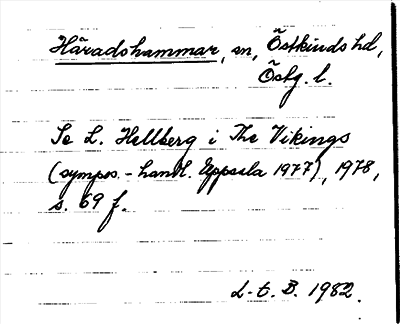 Häradshammar, sn, Östkinds hd,
Östg. l.
Se L. Hellberg i The Vikings
(sympos.-handl. Uppsala 1977), 1978,
s. 69 f.
L-E. B. 1982.